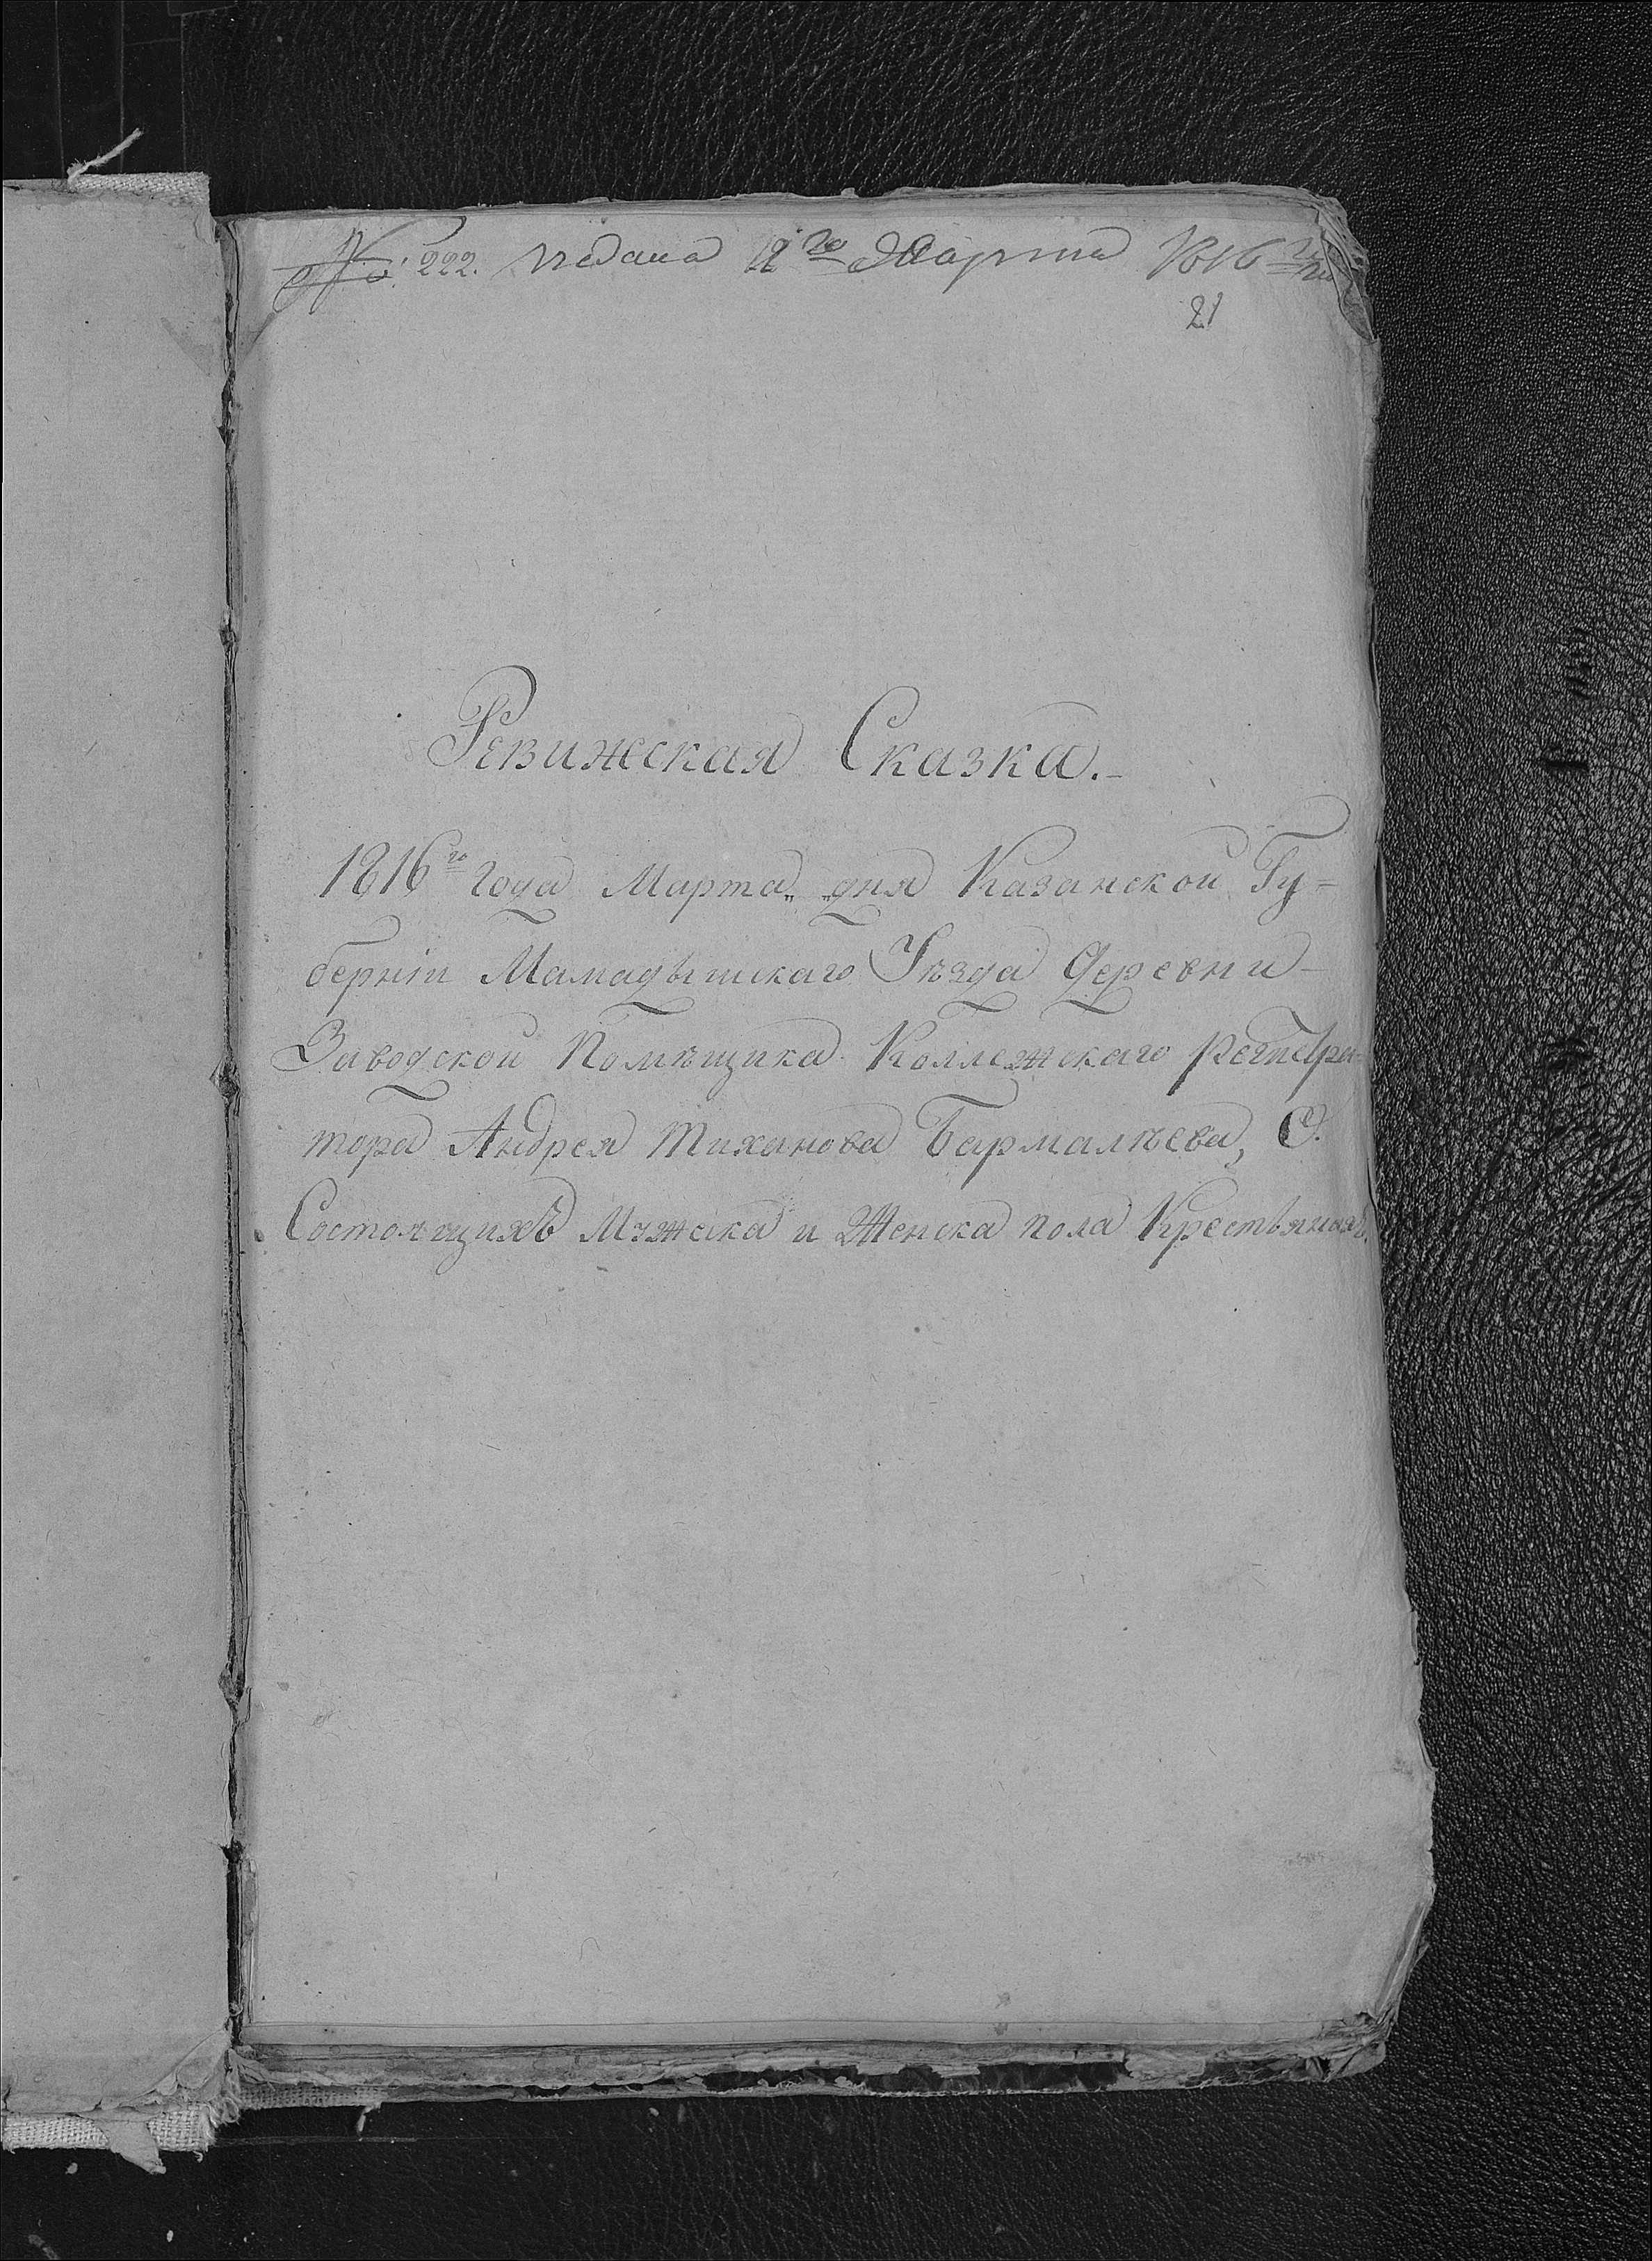 №: 222. подана 12го Марта 1816го
21
Ревижская Сказка.-
1816го года Марта „ „ дня Казанской Гу=
берніи Мамадышскаго Уѣзда Деревни
Заводской Помѣщика Коллежскаго регистра=
тора Андрея Тиханова Бармалѣева, О.
Состоящихъ Мужеска и Женска пола Крестьянахъ.